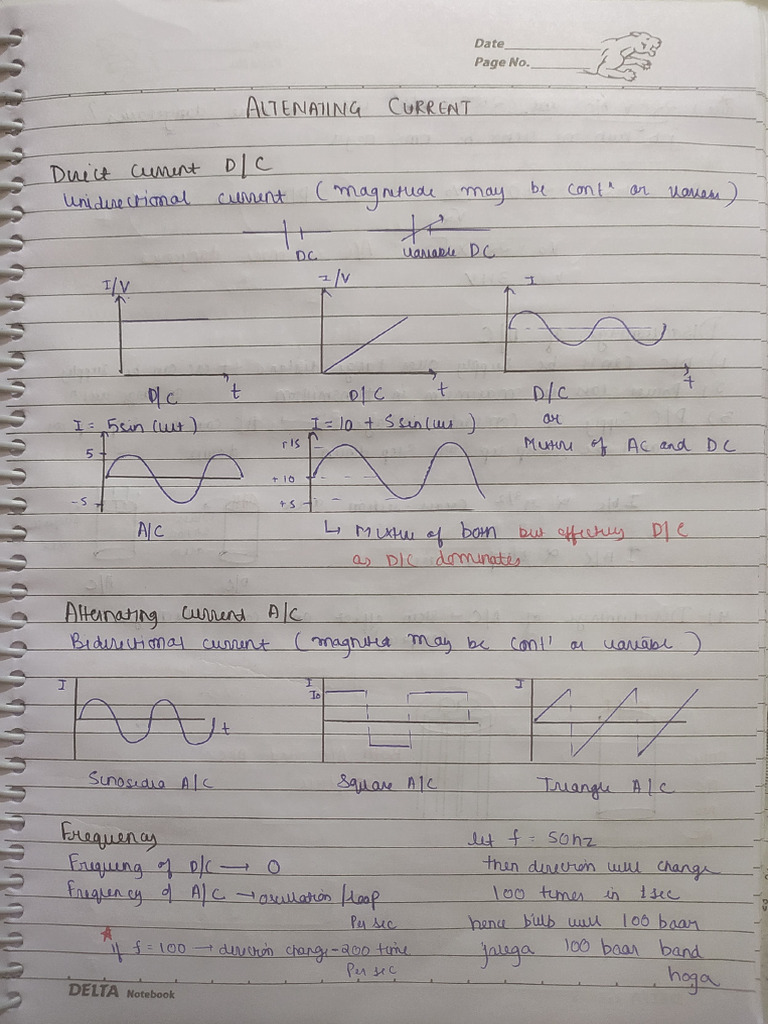 Date
Page No.
ALTENATING CURRENT
Direct Current D/C
Unidirectional current (magnitude may be cont' or varian)
DC
variable DC
I/V
I/V
I
t
t
t
D/C
D/C
D/C
or
Mixture of AC and DC
I = 5sin(wt)
I = 10 + 5sin(wt)
5
-5
A/C
+15
+10
+5
↳ Mixture of both but effectively D/C
as D/C dominates
Alternating Current A/C
Bidirectional current (magnitud may be cont' or variable)
I
t
I
I0
I
Sinosidia A/C
Square A/C
Triangle A/C
Frequency
Frequency of D/C → 0
Frequency of A/C → oscillation/loop
Per sec
if f = 100 → direction change - 200 time
Per sec
let f = 50hz
then direction will change
100 times in 1 sec
hence bulb will 100 baar
jalega 100 baar band
hoga
DELTA Notebook